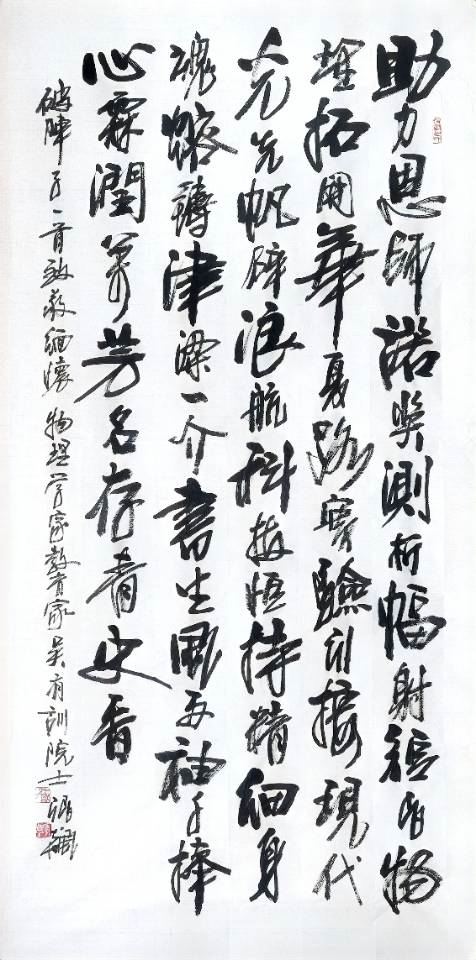 助力恩师諾奖測析幅射福音物
理拓開華夏路實驗引接現代
光先帆辟浪航科技恒持精细身
魂熔鑄津梁一介書生風雨袖千捧
心霖潤万芳名存青史香
破陣子一首致敬缅懷物理学家教育家吴有訓院士